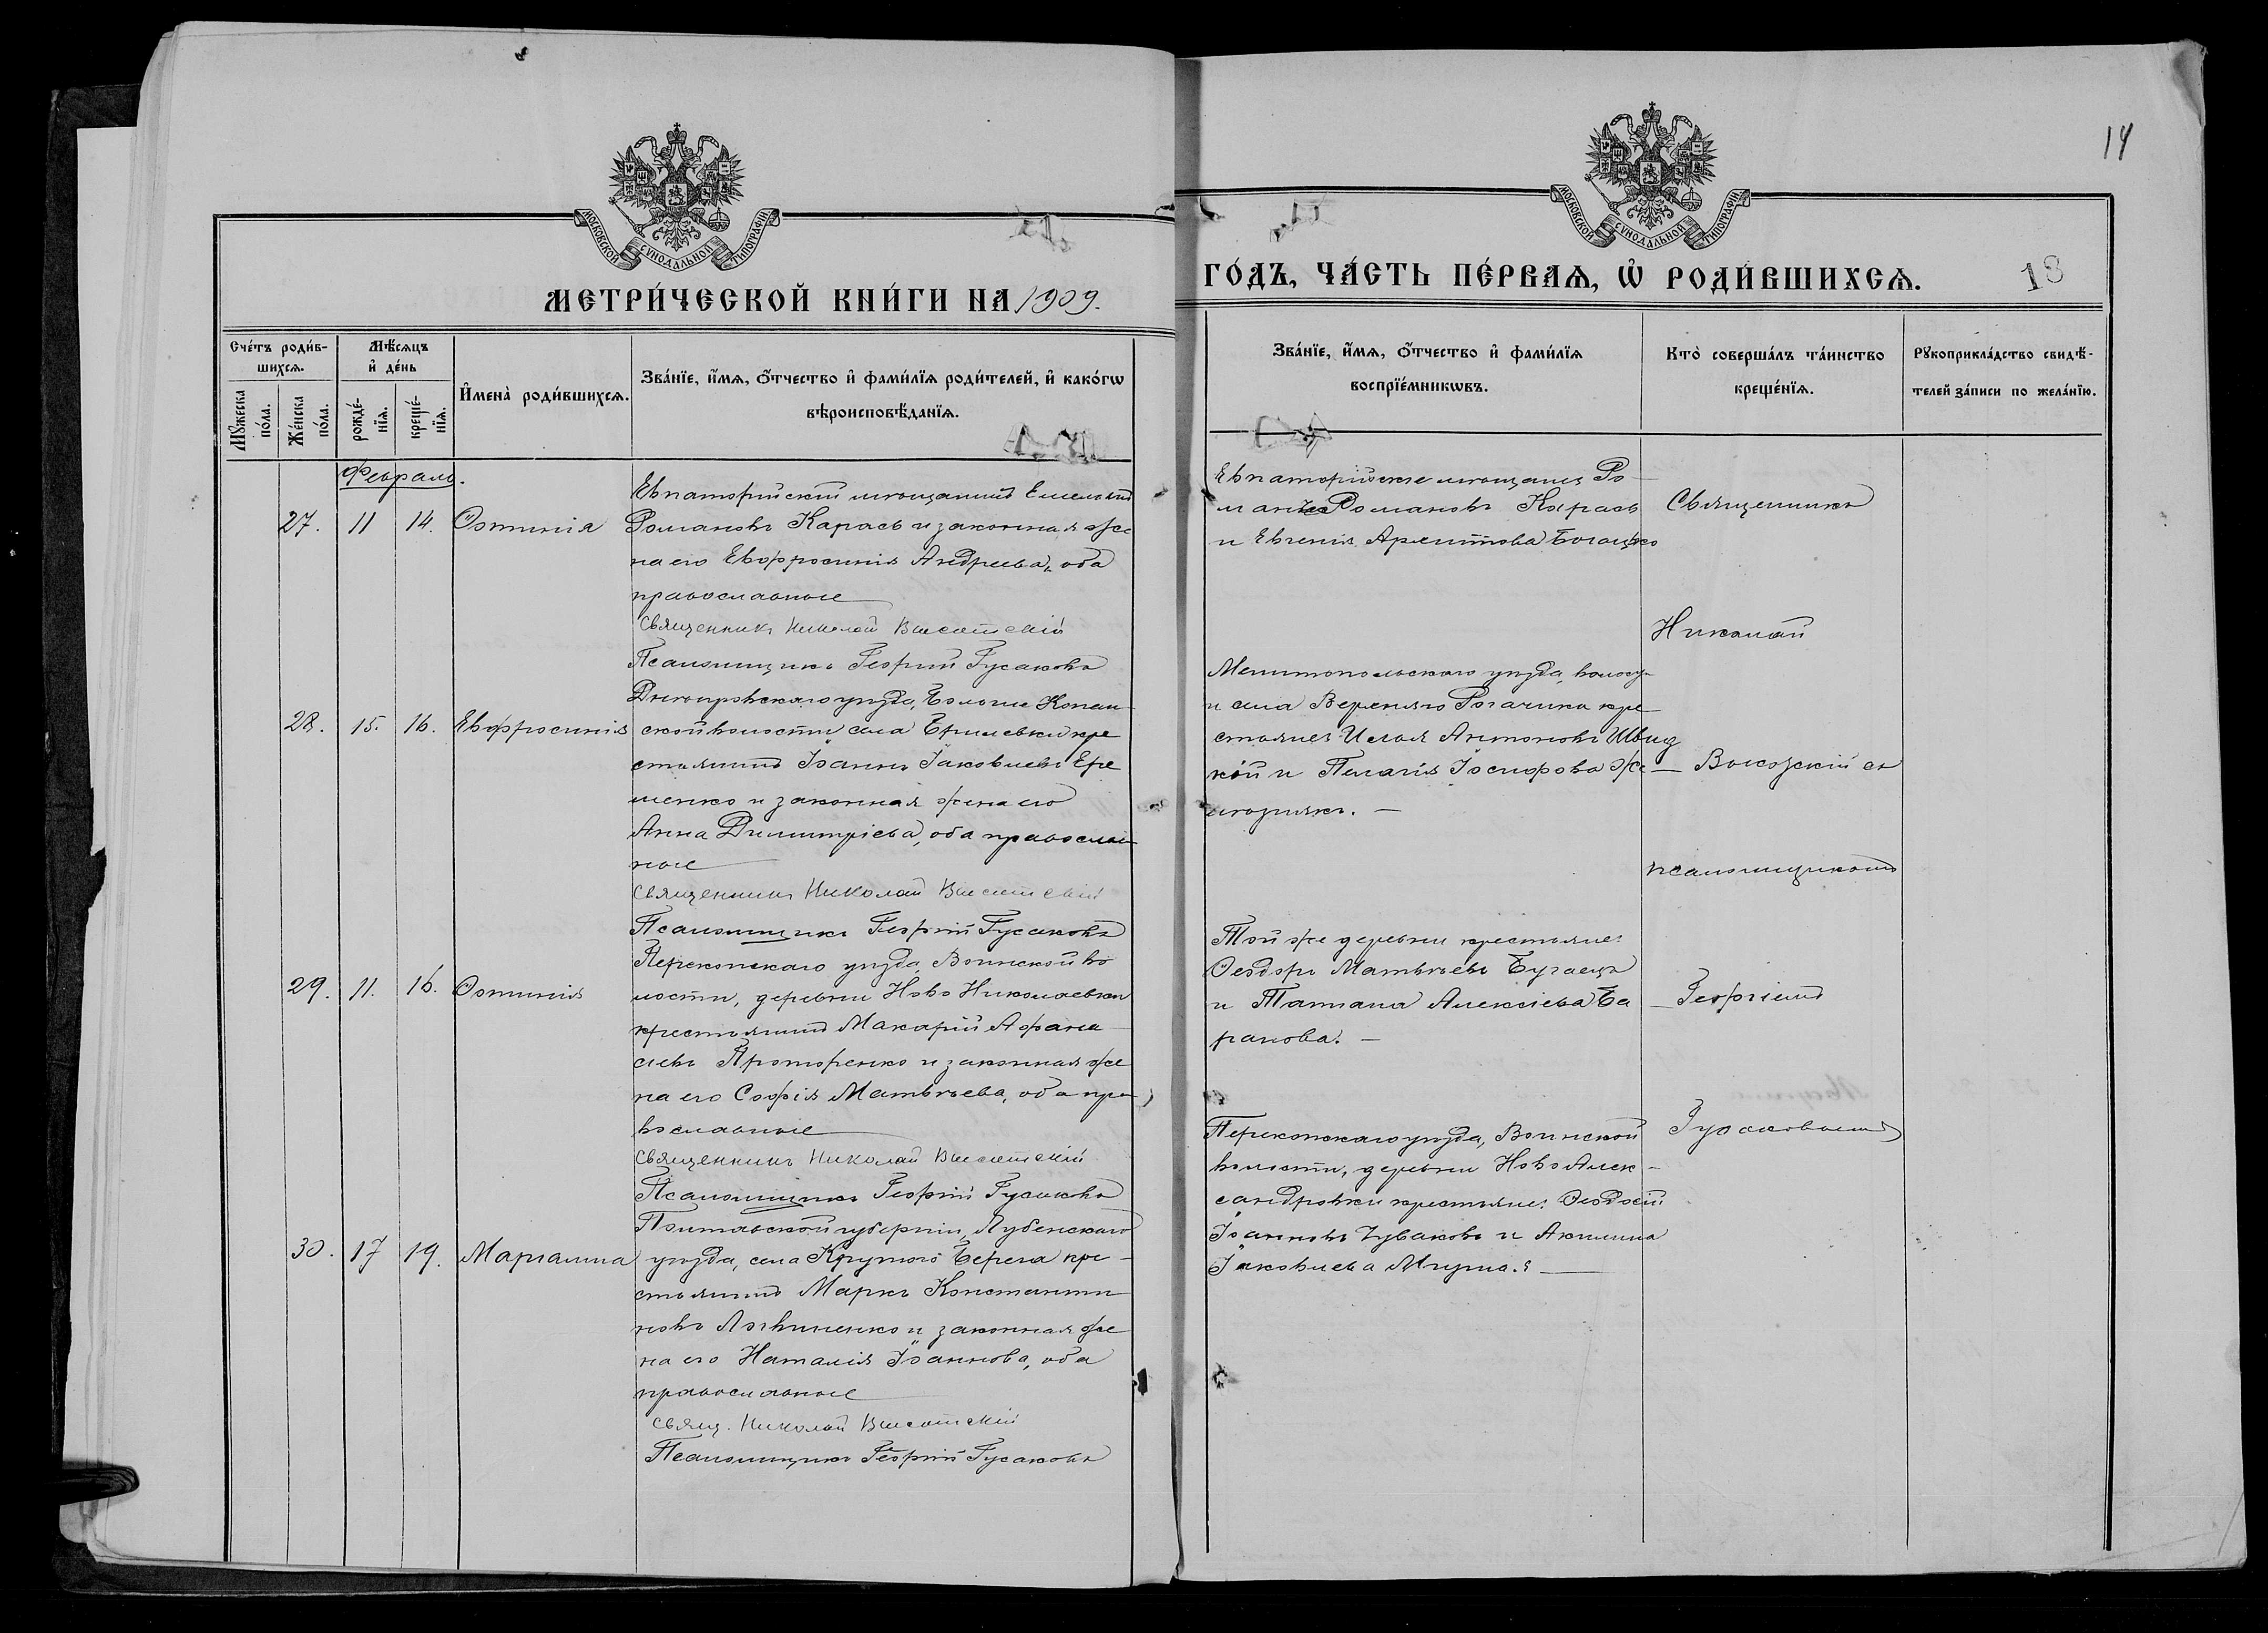 14
МОСКОВСКОЙ СѴНОДАЛЬНОЙ ТИПОГРАФІИ
МОСКОВСКОЙ СѴНОДАЛЬНОЙ ТИПОГРАФІИ
МЕТРИ́ЧЕСКОЙ КНИ́ГИ НА 1909.
ГО́ДЪ, ЧА́СТЬ ПЕ́РВАѦ, Ѡ҆ РОДИ́ВШИХСѦ.
18
Сче́тъ роди́в-
шихсѧ.
Мꙋ́жеска
по́ла.
Же́нска
по́ла.
Мѣ́сѧцъ
и҆ де́нь
рожде́-
нїѧ.
креще́-
нїѧ.
И҆мена̀ роди́вшихсѧ.
Зва́нїе, и҆́мѧ, ѻ҆́тчество и҆ фами́лїѧ роди́телей, и҆ како́гѡ
вѣроисповѣ́данїѧ.
Зва́нїе, и҆́мѧ, ѻ҆́тчество и҆ фами́лїѧ
воспрїе́мникѡвъ.
Кто̀ соверша́лъ та́инство
креще́нїѧ.
Рꙋкоприкла́дство свидѣ́-
телей за́писи по жела́нїю.
Февраль.
27.
11
14.
Фотинія
Евпаторійскій мѣщанинъ Емельянъ
Романовъ Карась и законная же
на его Евфросинія Андреева, оба
православные
Священникъ Николай Высотскій
Псаломщикъ Георгій Гусаковъ
Евпаторійские мѣщане Ро-
манъ Романовъ Карась
и Евгенія
28.
15.
16.
Евфросинія
Днѣпровскаго уѣзда, Больше Копан-
ской волости села Брилевки кре
стьянинъ Іоаннъ Іаковлевъ Ере
менко и законная жена его
Анна Димитріева, оба православ
ные
Священникъ Николай Высотскій
Псаломщикъ Георгій Гусаковъ
Мелитопольскаго уѣзда, волос
и села Верхняго Рогачика кре
стьяне: Илья Антоновъ Швид
кій и Пелагія Іосифова Же
29.
11.
16.
Фотинія
Перекопскаго уѣзда, Воинской во
лости, деревни Ново Николаевки
крестьянинъ Макарій Афана
сіевъ Проторенко и законная же
на его Софія Матвѣева, оба пра
вославные
Священникъ Николай Высотскій
Псаломщикъ Георгій Гусаковъ
Той же деревни крестьяне:
Феодоръ Матвѣевъ Бугаецъ
и Татіана Алексіева Ба
ранова. —
30.
17
19.
Маріамна
Полтавской губерніи, Лубенскаго
уѣзда, села Крутого Берега кре-
стьянинъ Маркъ Константи
новъ Логвиненко и законная же
на его Наталія Іоаннова, оба
православные
Свящ. Николай Высотскій
Псаломщикъ Георгій Гусаковъ
Перекопскаго уѣзда, Воинской
волости, деревни Ново Алек-
сандровки крестьяне: Феодосій
Іоанновъ Чуваковъ и Акилина
Іаковлева
Священникъ
Николай
Высотскій съ
псаломщикомъ
Георгіемъ
Гусаковымъ